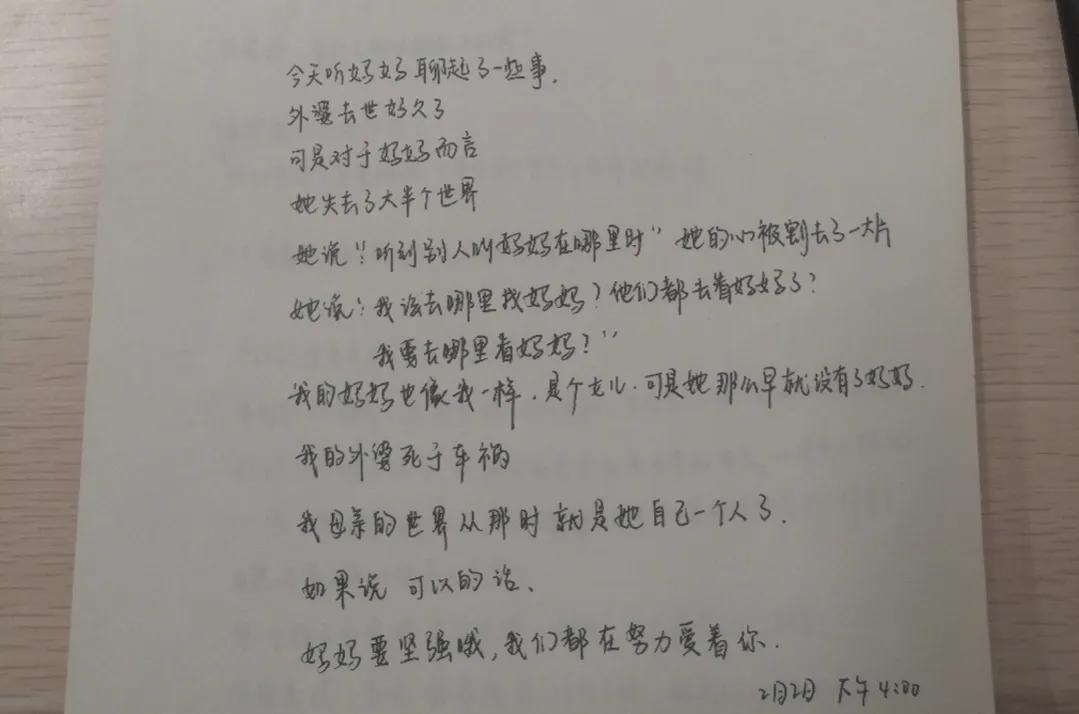 今天听妈妈聊起了一些事.
外婆去世好久了
可是对于妈妈而言
她失去了大半个世界
她说“听到别人叫妈妈在哪里时”她的心被割去了一大片
她说:我该去哪里找妈妈?他们都去看妈妈了?
我要去哪里看妈妈?”
我的妈妈也像我一样.是个女儿.可是她那么早就没有了妈妈.
我的外婆死于车祸
我母亲的世界从那时就是她自己一个人了.
如果说 可以的话、
妈妈要坚强哦,我们都在努力爱着你.
2月2日 下午4:00